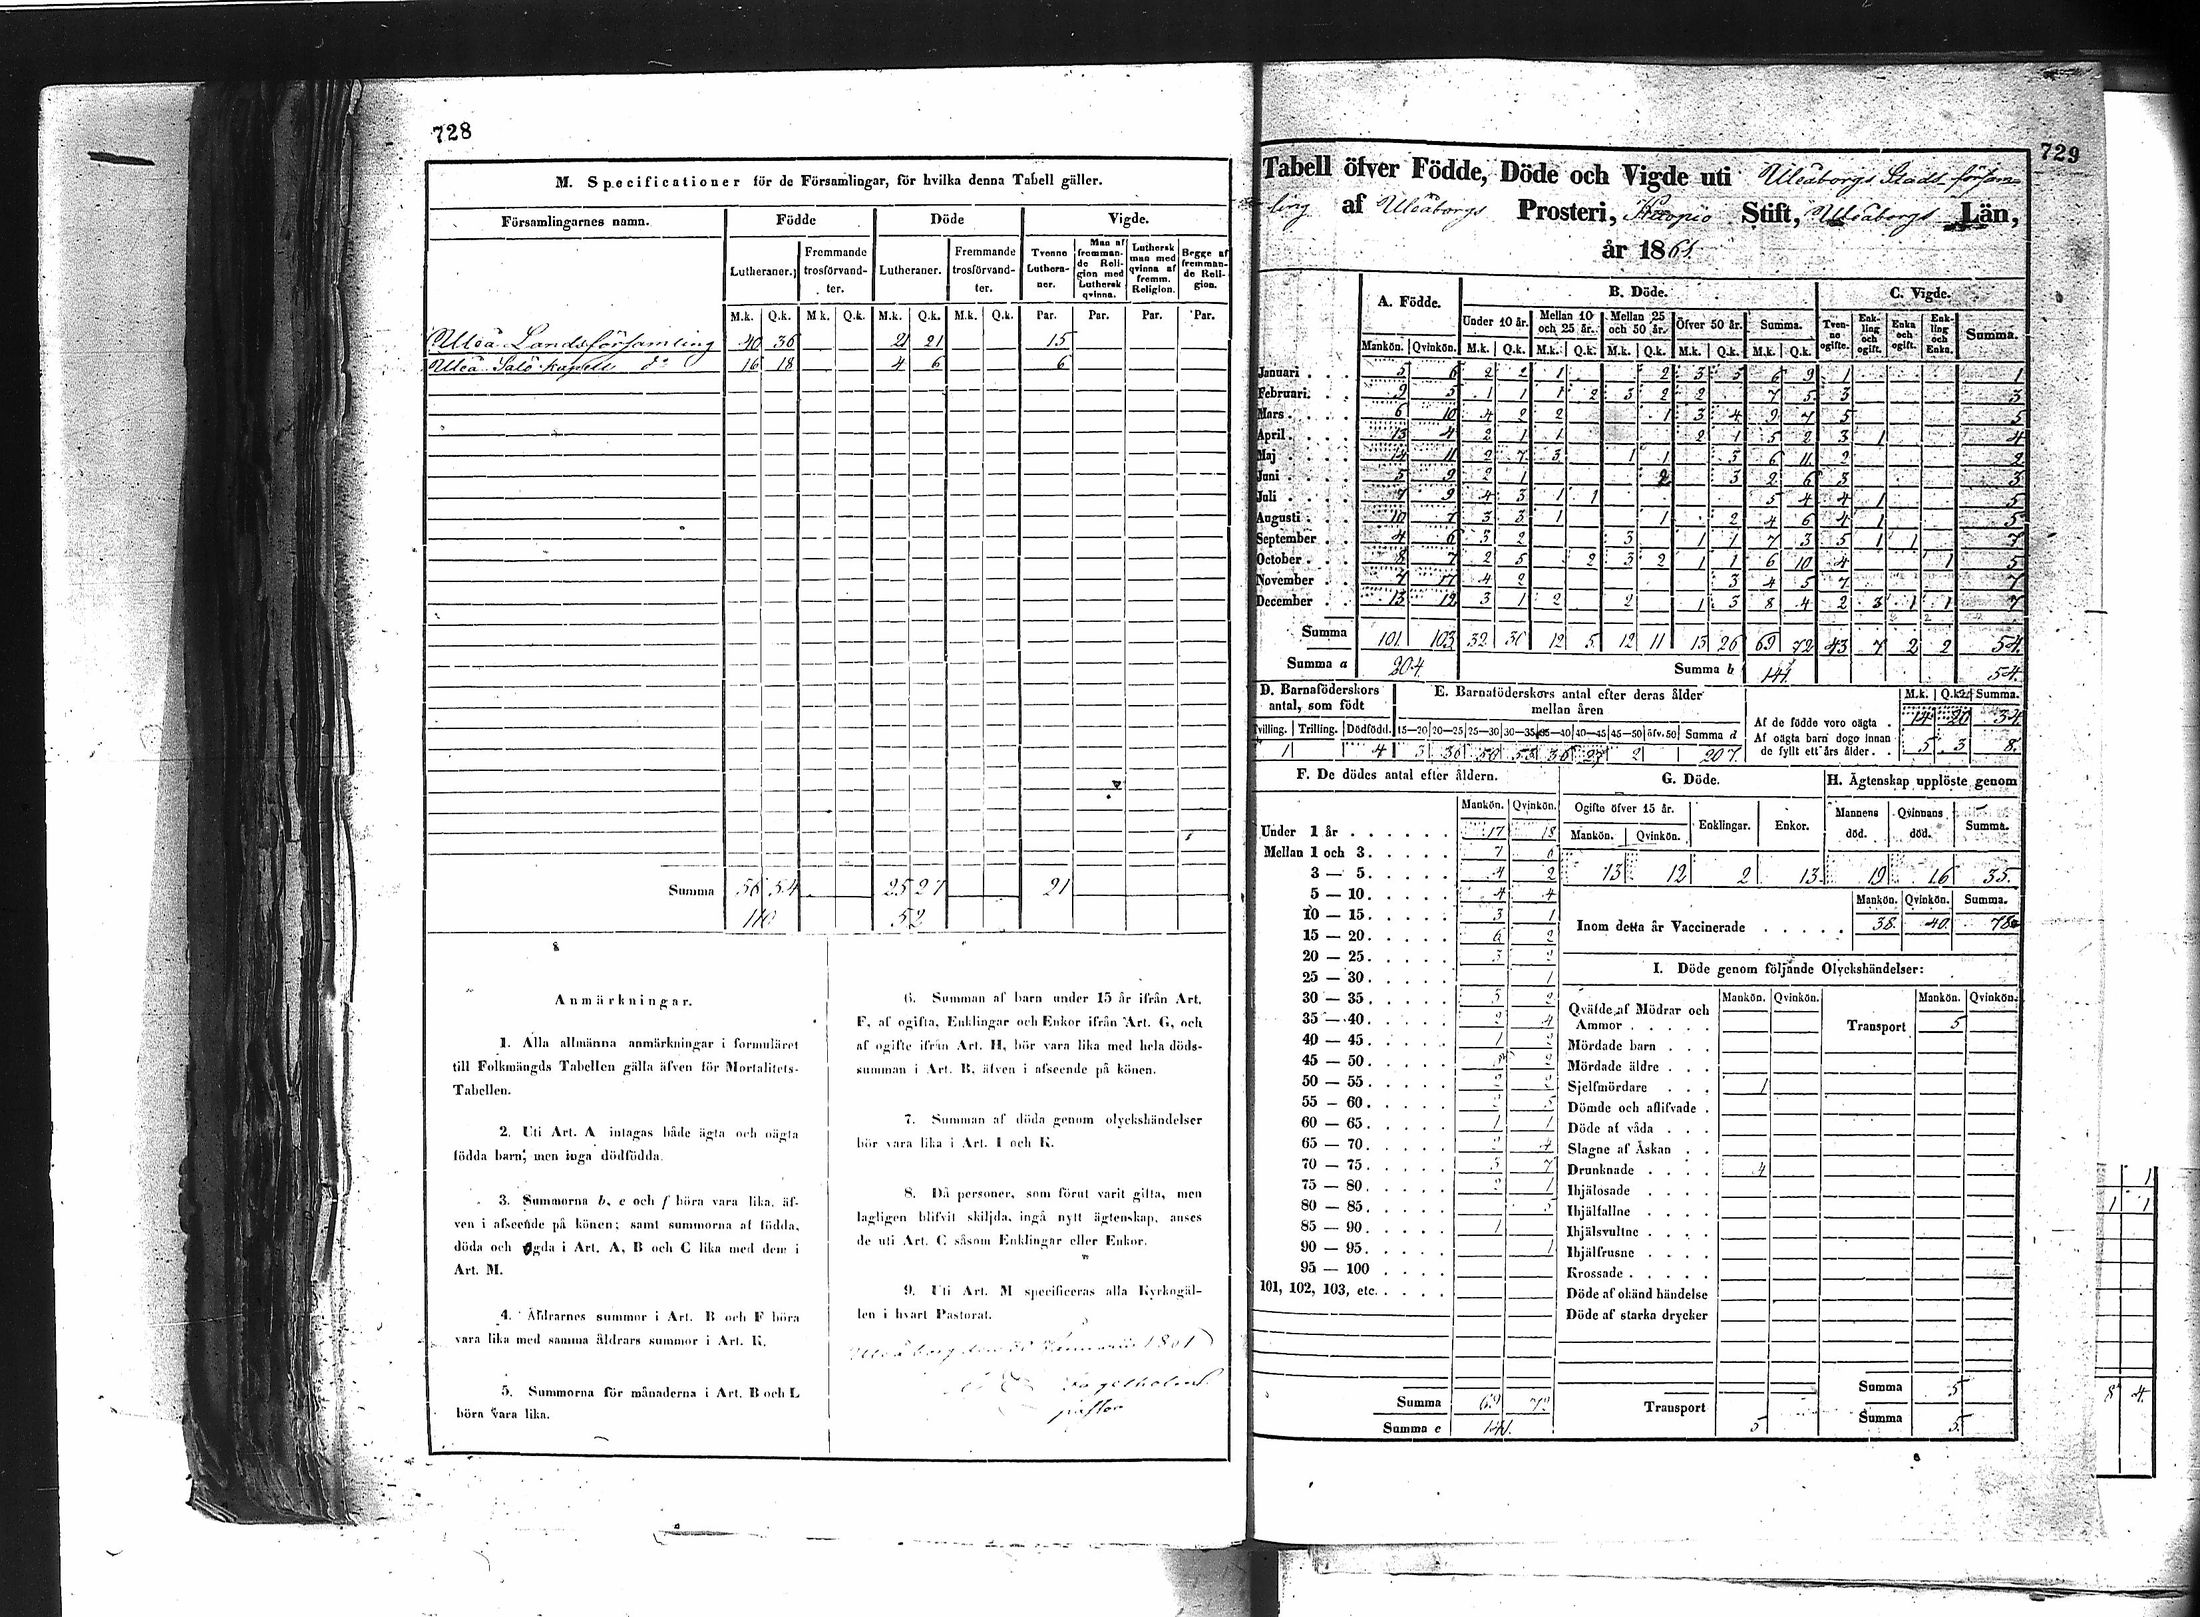 728
M. Specificationer för de Församlingar, för hvilka denna Tabell gäller.
Församlingarnes namn. Födde Döde Vigde.
Lutheraner. Fremmande trosförvandter. Lutheraner. Fremmande trosförvandter. Tvenne Lutheraner. Man af fremmande Religion med Luthersk qvinna. Luthersk man med qvinna af fremm. Religion. Begge af fremmande Religion.
M.k. Q.k. M.k. Q.k. M.k. Q.k. M.k. Q.k. Par. Par. Par. Par.
Uleå Landsförsamling 40 36 21 21 15
Uleå Salö kapell do 16 18 4 6 6
Summa 56 54 25 27 21
110 52
Anmärkningar.
1. Alla allmänna anmärkningar i formuläret
till Folkmängds Tabellen gälla äfven för Mortalitets-
Tabellen.
2. Uti Art. A intagas både ägta och oägta
födda barn, men inga dödfödda.
3. Summorna b, e och f böra vara lika, äf-
ven i afseende på könen; samt summorna af födda,
döda och vigda i Art. A, B och C lika med dem i
Art. M.
4. Åldrarnes summor i Art. B och F böra
vara lika med samma åldrars summor i Art. K.
5. Summorna för månaderna i Art. B och L
böra vara lika.
6. Summan af barn under 15 år ifrån Art.
F, af ogifta, Enklingar och Enkor ifrån Art. G, och
af ogifte ifrån Art. H, bör vara lika med hela döds-
summan i Art. B, äfven i afseende på könen.
7. Summan af döda genom olyckshändelser
bör vara lika i Art. I och K.
8. Då personer, som förut varit gifta, men
lagligen blifvit skiljda, ingå nytt ägtenskap, anses
de uti Art. C såsom Enklingar eller Enkor.
9. Uti Art. M specificeras alla Kyrkogäl-
len i hvart Pastorat.
Uleåborg den Januarii 1861
pastor
729
Tabell öfver Födde, Döde och Vigde uti Uleåborgs Stads försam-
ling af Uleåborgs Prosteri, Kuopio Stift, Uleåborgs Län,
år 1861.
A. Födde. B. Döde. C. Vigde.
Under 10 år. Mellan 10 och 25 år. Mellan 25 och 50 år. Öfver 50 år. Summa. Tvenne ogifte. Enkling och ogift. Enka och ogift. Enkling och Enka. Summa.
Mankön. Qvinkön. M.k. Q.k. M.k. Q.k. M.k. Q.k. M.k. Q.k. M.k. Q.k.
Januari 5 6 2 2 1 2 3 5 6 9 1 1
Februari 9 5 1 1 1 2 3 2 2 7 5 3 3
Mars 6 10 4 2 2 1 3 4 9 7 5 5
April 13 4 2 1 1 2 1 5 2 3 1 4
Maj 14 11 2 7 3 1 1 3 6 11 2 2
Juni 5 9 2 1 2 3 2 6 3 3
Juli 7 9 4 3 1 1 5 4 4 1 5
Augusti 10 7 3 3 1 1 2 4 6 4 1 5
September 4 6 3 2 3 1 1 7 3 5 1 1 7
October 8 7 2 5 2 3 2 1 1 6 10 4 1 5
November 7 17 4 2 3 4 5 7 7
December 13 12 3 1 2 2 1 3 8 4 2 3 1 1 7
Summa 101 103 32 30 12 5 12 11 13 26 69 72 43 7 2 2 54
Summa a 204 Summa b 141 54
D. Barnaföderskors antal, som födt
Tvilling. Trilling. Dödfödd.
1 4
E. Barnaföderskors antal efter deras ålder mellan åren
15—20 20—25 25—30 30—35 35—40 40—45 45—50 öfv. 50 Summa d
3 36 50 53 36 27 2 207
M.k. Q.k. Summa.
Af de födde voro oägta 14 20 34
Af oägta barn dogo innan de fyllt ett års ålder 5 3 8
F. De dödes antal efter åldern.
Mankön. Qvinkön.
Under 1 år 17 18
Mellan 1 och 3 7 6
3 — 5 4 2
5 — 10 4 4
10 — 15 3 1
15 — 20 6 2
20 — 25 3 2
25 — 30 1
30 — 35 5 2
35 — 40 2 4
40 — 45 1 2
45 — 50 2
50 — 55 2 2
55 — 60 2 5
60 — 65 1 1
65 — 70 2 4
70 — 75 7
75 — 80 2 1
80 — 85
85 — 90 1
90 — 95 1
95 — 100
101, 102, 103, etc.
Summa 69 72
Summa e 141
G. Döde.
Ogifte öfver 15 år. Enklingar. Enkor.
Mankön. Qvinkön.
13 12 2 13
H. Ägtenskap upplöste genom
Mannens död. Qvinnans död. Summa.
19 16 35
Mankön. Qvinkön. Summa.
Inom detta år Vaccinerade 38 40 78
I. Döde genom följande Olyckshändelser:
Mankön. Qvinkön. Mankön. Qvinkön.
Qväfde af Mödrar och Ammor
Transport 5
Mördade barn
Mördade äldre
Sjelfmördare 1
Dömde och aflifvade
Döde af våda
Slagne af Åskan
Drunknade 4
Ihjälosade
Ihjälfallne
Ihjälsvultne
Ihjälfrusne
Krossade
Döde af okänd händelse
Döde af starka drycker
Summa 5
Transport 5 Summa 5
1
1 1
8 4